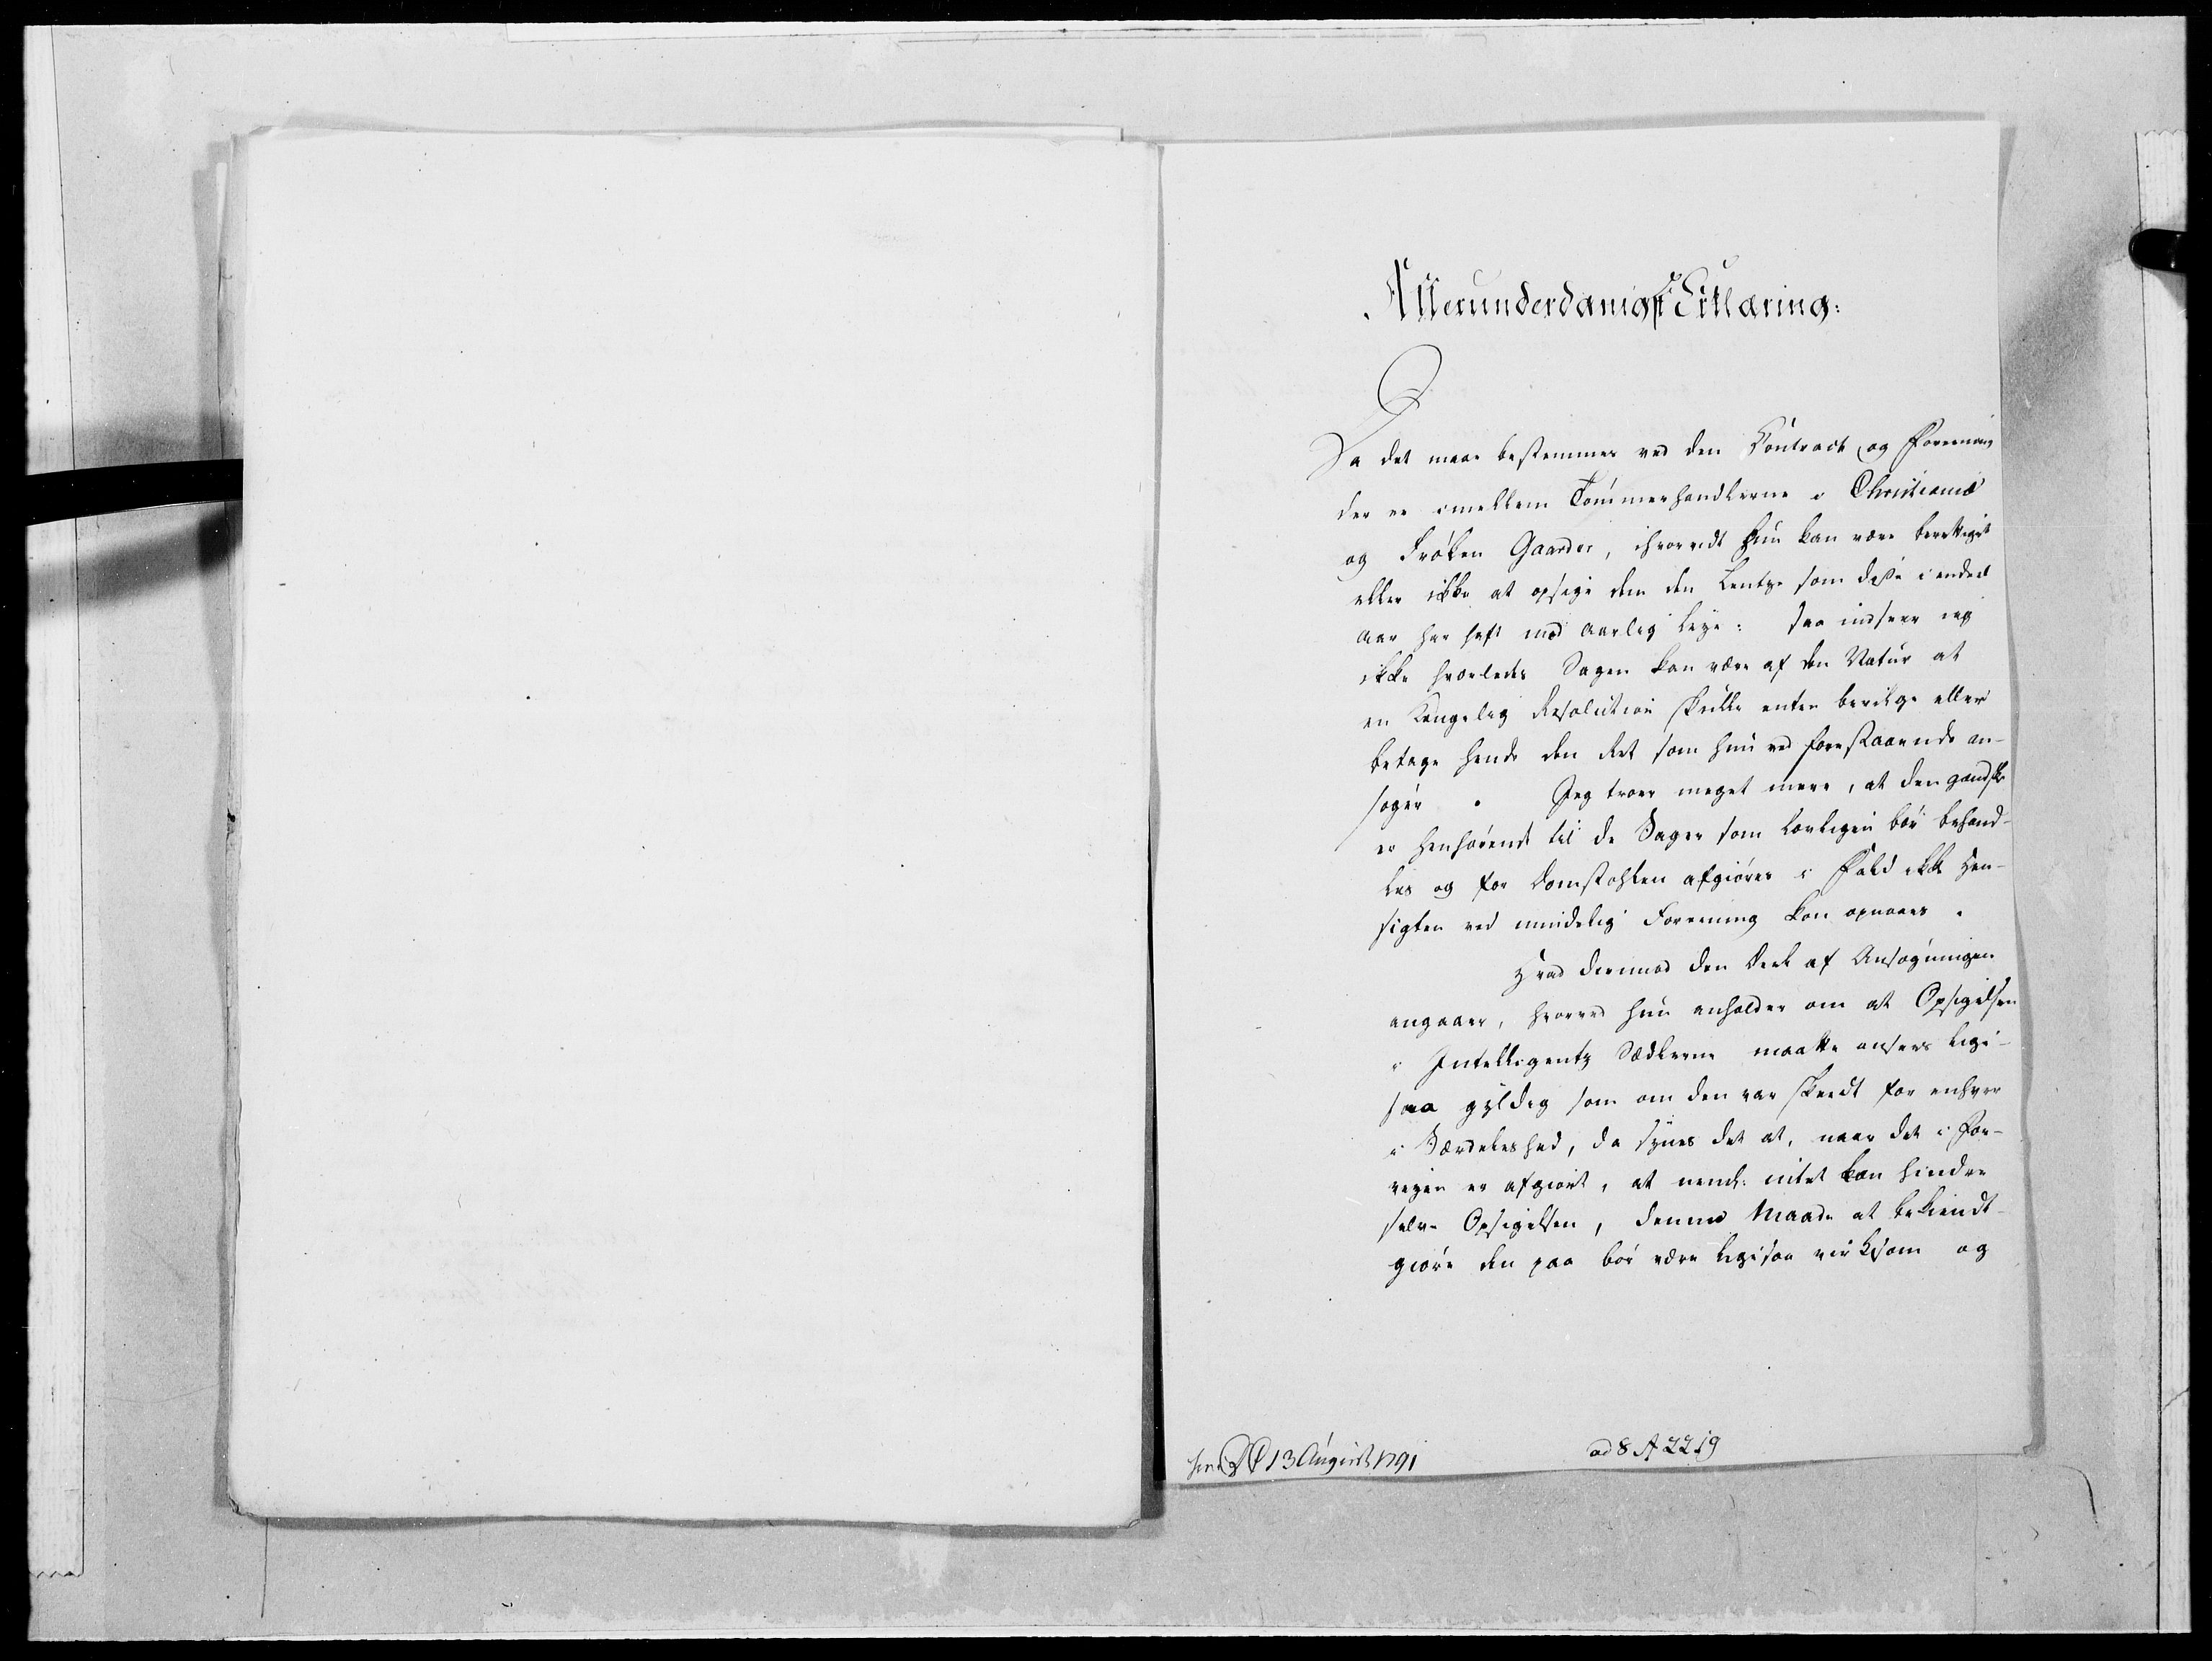 Allerunderdanigst Erklæring:
Da det maae bestemmes ved den Contract og Foreening
der er imellem Tømmerhandlerne i Christiania
og Frøken Gaarder, ihvorvidt hun kan være berettiget
eller ikke at opsige dem den som disse i endeel
Aar har haft mod aarlig Leye: saa indseer jeg
ikke hvorledes Sagen kan være af den Natur at
en Kongelig Resolution skulle enten bevilge eller
betage hende den Ret som hun ved forestaaende an-
søger. Jeg troer meget mere, at den gandske
er henhørende til de Sager som lovligen bør behand-
les og for Domstohlen afgiøres i Fald ikke Hen-
sigten ved mindelig Foreening kan opnaaes.
Hvad derimod den Deel af Ansøgningen
angaaer, hvorved hun anholder om at Opsigelsen
i Intelligentz Sædlerne maatte ansees lige-
saa gyldig som om den var skeedt for enhver
i Særdeleshed, da synes det at, naar det i For-
vejen er afgiort, at nemlig: intet kan hindre
selve Opsigelsen, denne Maade at bekiendt-
giøre den paa bør være ligesaa virksom og
13 August 1791
ad 8 A 2219